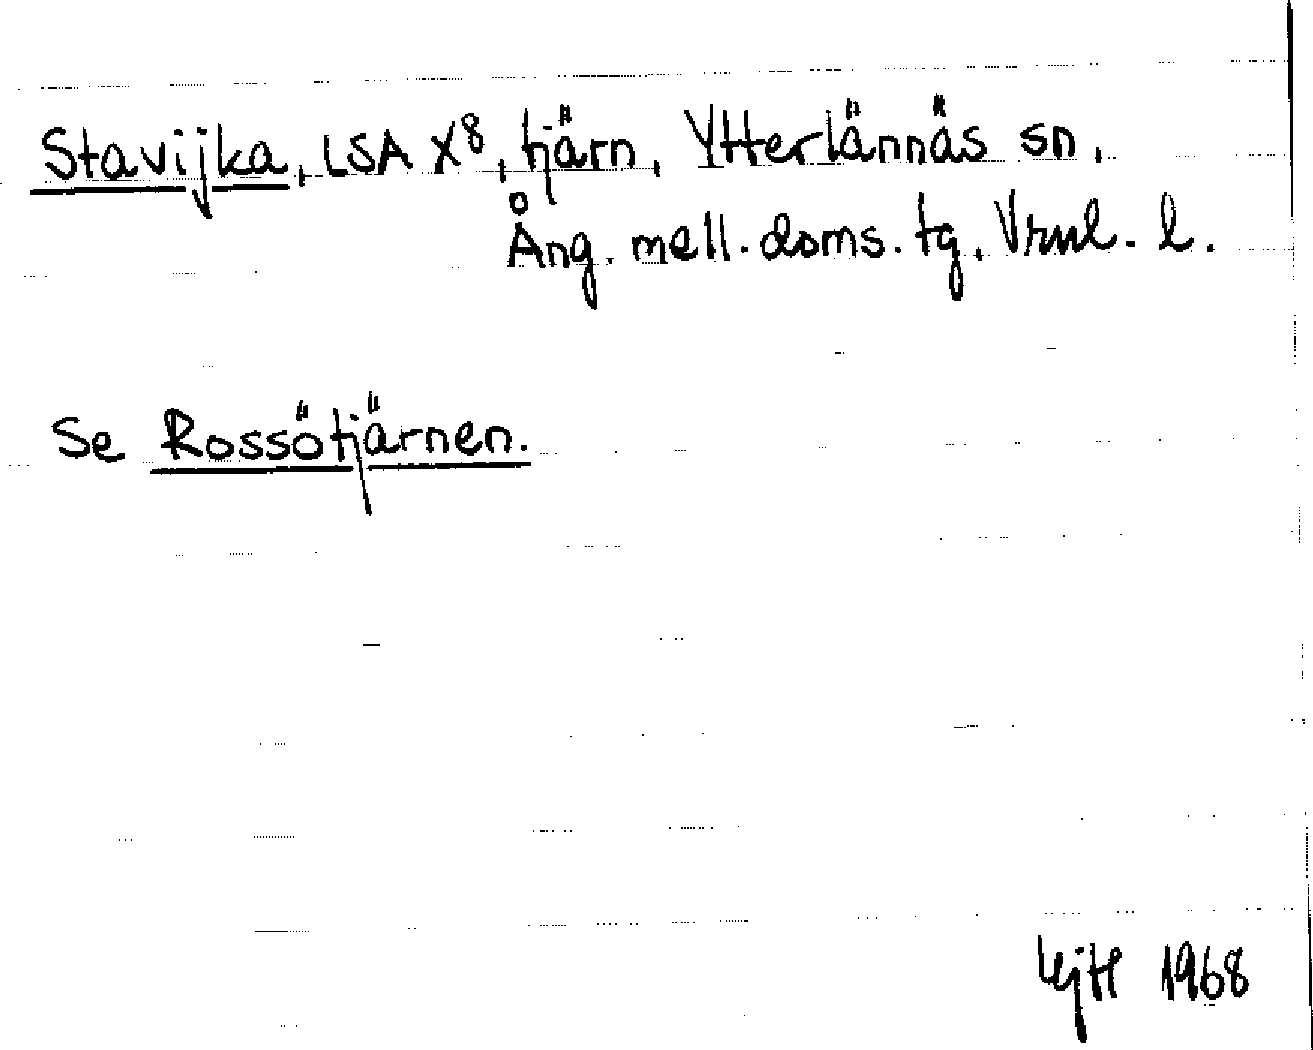 Stavijka, LSA X8, tjärn, Ytterlännäs sn,
Ång. mell. doms. tg. Vrnl. l.
Se Rossötjärnen.
1968